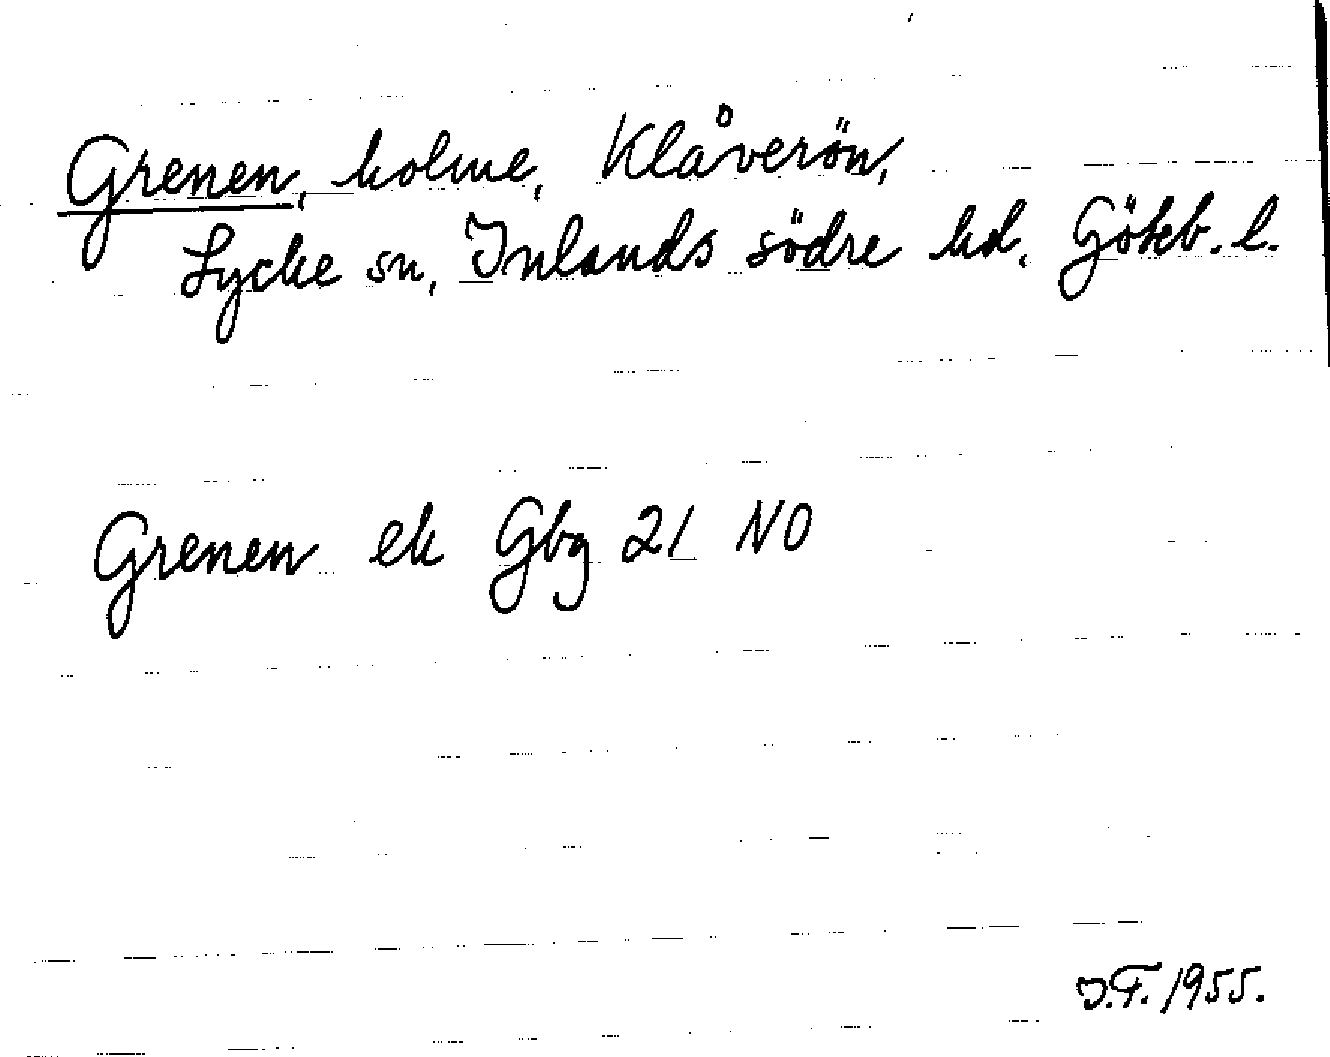 Grenen, holme, Klåverön,
Lycke sn, Inlands södre hd, Göteb. l.
Grenen ek Gbg 21 NO
I.F. 1955.